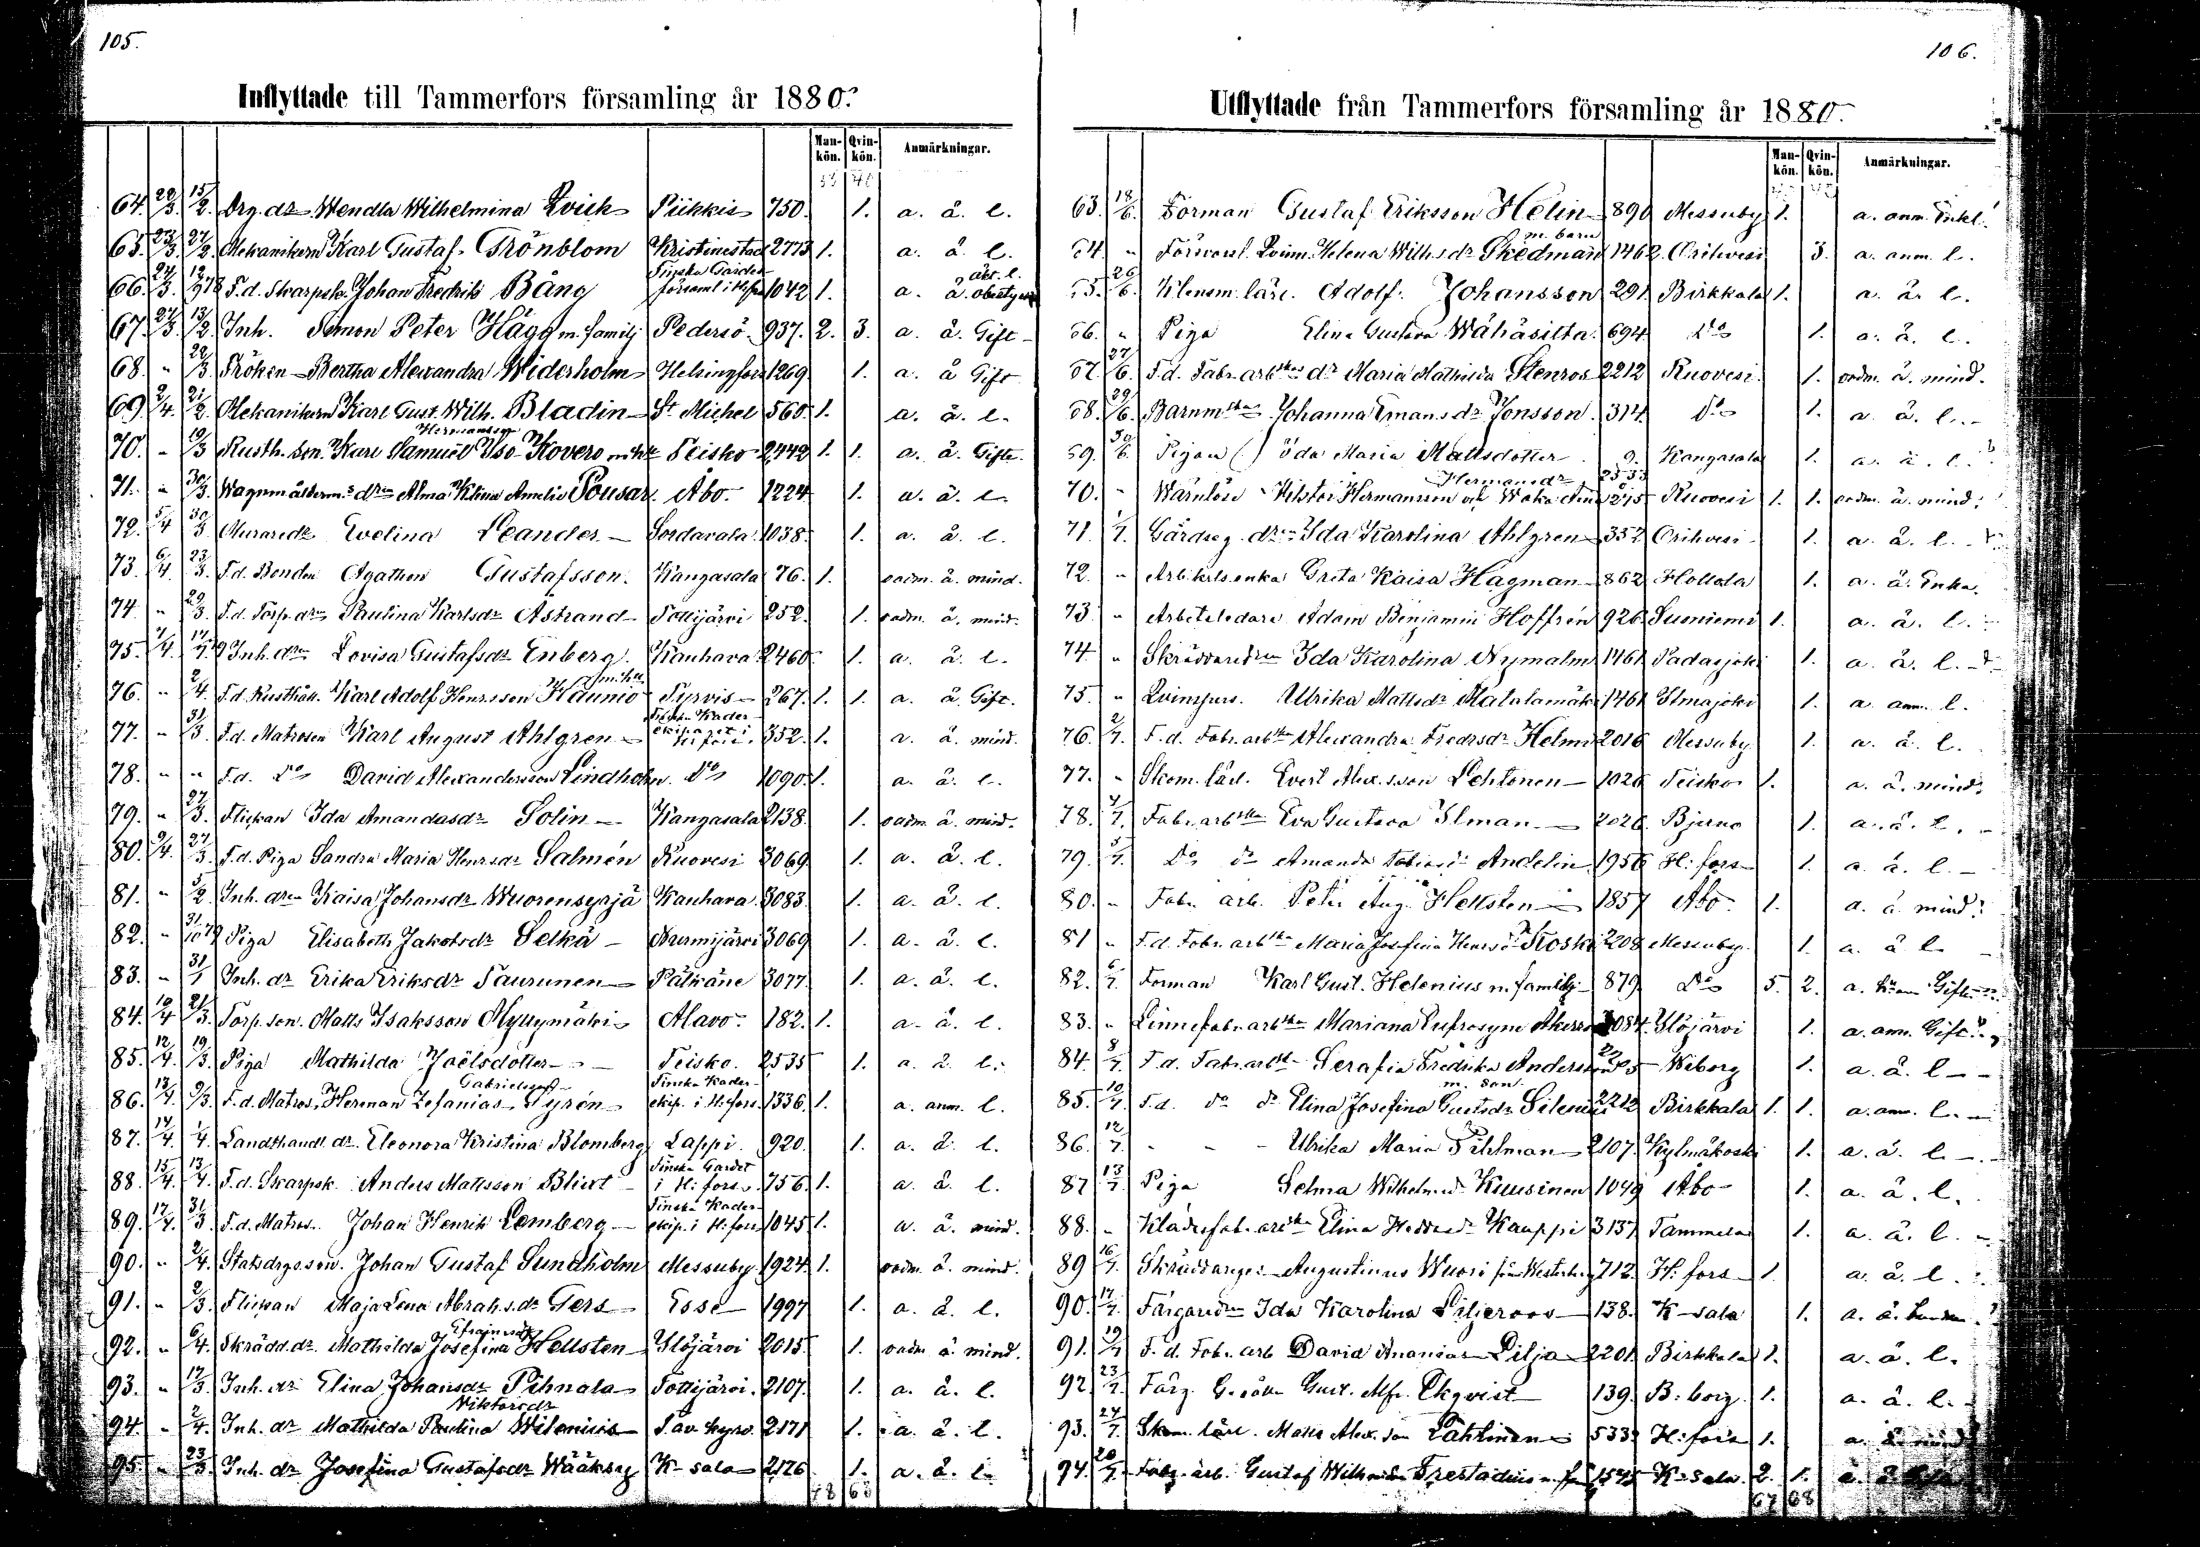 105.
Inflyttade till Tammerfors församling år 1880.
Mankön. Qvinkön. Anmärkningar.
64. 22/3. 15/2. Drg. dr Wendla Wilhelmina Qvick Piikkis 750. 1. a. ä. l.
65. 23/3. 27/2. Mekanikern Karl Gustaf Grönblom Kristinestad 2773 1. a. ä. l.
66. 24/3. 12/9 78 F.d. Skarpsk. Johan Fredrik Bång Finska Gardes församl. i H:fors 1042 1. a. ä. äkt. l. obestyrkt
67. 27/3. 13/2. Inh. Simon Peter Hägg m. familj Pedersö 937. 2. 3. a. ä. Gift
68. " 22/3. Fröken Bertha Alexandra Widerholm Helsingfors 1269 1. a. ä Gift
69. 2/4. 21/2. Mekanikern Karl Gust. Wilh. Bladin St Michel 560. 1. a. ä. l.
70. " 19/3 Rusth. son. Karl Samuel Hermansson Iso-Kovero m. h. Teisko 2442 1. 1. a. ä. Gifte.
71. " 30/3. Wagnmålderm:s drn Alma Elina Amelie Pousar. Åbo. 1224 1. a. ä. l.
72. 5/4 30/3 Muraredr Evelina Leander Sordavala 1038. 1. a. ä. l.
73. 6/4. 23/3. F.d. Bonden Agathon Gustafsson. Kangasala 76. 1. oadm. ä. mind.
74 " 29/3. F.d. Torp. drn Paulina Karlsdr Åstrand Tottijärvi 252. 1. oadm. ä. mind.
75. 7/4. 17/7 79 Inh. drn Lovisa Gustafsdr Enberg. Kauhava 2460. 1. a. ä. l.
76. " 2/4. F.d. Rusthåll. Karl Adolf Henrsson Haunio m. hu Tyrvis 267. 1. 1. a. ä. Gift.
77. " 31/3. F.d. Matrosen Karl August Ahlgren Finska Kader-ekipaget i H:fors. 352. 1. a. ä. mind.
78. " " F.d. Do David Alexandersson Lindholm. Do 1090. 1. a. ä. l.
79. " 27/3. Flickan Ida Amandasdr Solin Kangasala 2138. 1. oadm. ä. mind.
80. 9/4. 27/3. F.d. Piga Sandra Maria Henrsdr Salmén Ruovesi 3069 1. a. ä. l.
81. " 5/2 Inh. drn Kaisa Johansdr Wuorensyrjä Kauhava 3083. 1. a. ä. l.
82. " 31/10 79 Piga Elisabeth Jakobsdr Selkä Nurmijärvi 3069 1. a. ä. l.
83. " 31/1 Inh. dr Erika Eriksdr Taurunen Pälkäne 3077 1. a. ä. l.
84. 10/4 21/3. Torp. son. Matts Isaksson Myllymäki Alavo. 182. 1. a. ä. l.
85. 12/4. 19/3. Piga Mathilda Joëlsdotter Teisko. 2535 1. a. ä. l.
86. 13/4. 9/3. F.d. Matros. Herman Zefanias Gabrielsson Tyrén Finska Kader-ekip. i H:fors. 1336 1. a. anm. l.
87. 14/4. 1/4. Landthandl. dr. Eleonora Kristina Blomberg Lappi 920. 1. a. ä. l.
88. 15/4. 13/4. F.d. Skarpsk. Anders Mattsson Blixt Finska Gardet i H:fors. 756. 1. a. ä. l.
89. 17/4. 31/3. F.d. Matros. Johan Henrik Lemberg Finska Kader-ekip. i H:fors 1045 1. a. ä. mind.
90. " 2/4. Statsdrgs. son. Johan Gustaf Sundholm Messuby. 1924. 1. oadm. ä. mind.
91. " 2/3. Flickan Maja Lena Abrah.s. dr Gers Esse 1997 1. a. ä. l.
92. " 6/4. Skrädd. dr. Mathilda Josefina Efraimsdr Hellsten Ylöjärvi 2015. 1. oadm. ä. mind.
93. " 17/3. Inh. dr Elina Johansdr Pihnala Tottijärvi. 2107. 1. a. ä. l.
94. " 2/4. Inh. dr Mathilda Paulina Viktorsdr Wilenius Tav. kyrö. 2171 1. a. ä. l.
95. " 23/3. Inh. dr Josefina Gustafsdr Wääksy K-sala 2176 1. a. ä. l.
106.
Utflyttade från Tammerfors församling år 1880.
Mankön. Qvinkön. Anmärkningar.
63. 18/6. Förman Gustaf Eriksson Helin 890 Messuby 1. a. anm. Enkl.
64. " Försvarsl. Qvinn. Helena Wilh.s. dr Skedman m. barn 1462. Orihvesi 3. a. anm. l.
65. 26/6. Klensm. lärl. Adolf Johansson 291. Birkkala 1. a. ä. l.
66. " Piga Elina Gustava Wähäsilta. 694. Do 1. a. ä. l.
67. 27/6. F.d. Fabr. arbskas dr Maria Mathilda Stenros 2212 Ruovesi. 1. oadm. ä. mind.
68. 29/6. Barnmska Johanna Emans. dr Jonsson. 314. Do 1. a. ä. l.
69. 30/6. Pigan Ida Maria Mattsdotter 9. Kangasala 1. a. ä. l.
70. " Wärnlöse Viktor Hermansson och Hermansdr 2533 215 Ruovesi 1. 1. oadm. ä. mind.
71. 1/7. Gårdseg. drn Ida Karolina Ahlgren 352 Orihvesi 1. a. ä. l.
72. " Arb.karls enka Greta Kaisa Hagman 862 Hollola 1. a. ä. Enka.
73. " Arbetsledare Adam Benjamin Hoffrén 926 Sumiemi 1. a. ä. l.
74. " Skräddaredrn Ida Karolina Nymalm 1461 Padasjoki 1. a. ä. l.
75. " Qvinspers. Ulrika Mattsdr Matalamäki 1461 Ilmajoki 1. a. anm. l.
76. 2/7. F.d. Fabr. arbska Alexandra Fredrsdr Helmi 2016 Messuby. 1. a. ä. l.
77. " Skom. lärl. Evert Alex.sson Lehtonen 1026 Teisko 1. a. ä. mind.
78. 4/7. Fabr. arbska Eva Gustava Ilman 2026 Bjerno 1. a. ä. l.
79. 5/7. Do do Amanda Tobiasdr Andelin 1956 H:fors 1. a. ä. l.
80. " Fabr. arb. Peter Aug. Hellsten 1857 Åbo 1. a. ä. mind.
81 " F.d. Fabr. arbska Maria Josefina Henrsdr Koski 2208 Messuby. 1. a. ä l.
82. 6/7. Förman Karl Gust. Helenius m. familj 879. Do 5. 2. a. Gifte
83. " Linnefabr. arbska Mariana Eufrosyne 3084. Ylöjärvi 1. a. anm. Gift
84. 8/7. F.d. Fabr. arbska Serafia Fredrika Andersson Wiborg 1. a. ä. l
85. 10/7. F.d. do do Elina Josefina Gustsdr Silenius m. son. 2212 Birkkala 1. 1. a. anm. l.
86. 12/7. - - - Ulrika Maria Pihlman 2107. Kylmäkoski 1. a. ä. l.
87 13/7. Piga Selma Wilhelmsdr Kuusinen 1049 Åbo 1. a. ä. l.
88. " Klädesfabr. arbska Elina Kauppi 3137 Tammela 1. a. ä. l.
89 16/7. Skräddareges. Augustinus Wuori förr Westerberg 712. H:fors 1. a. ä. l.
90. 17/7. Färgaredrn Ida Karolina Liljeroos 138. K-sala 1. a. ä.
91. 19/7 F.d. Fabr. arb David Ananias Lilja 2201 Birkkala 1. a. ä. l.
92. 23/7. Färg. Gesällen Gust. Alfr. Ekqvist 139. B:borg. 1. a. ä. l.
93. 24/7. Skom. lärl. Matts Alex. son Lahtinen 533. H:fors 1. a. ä. mind
94. 20/7. Fabr. arb. Gustaf Frestadius m. fam 1545 K-sala. 2. 1. a. ä
67 68